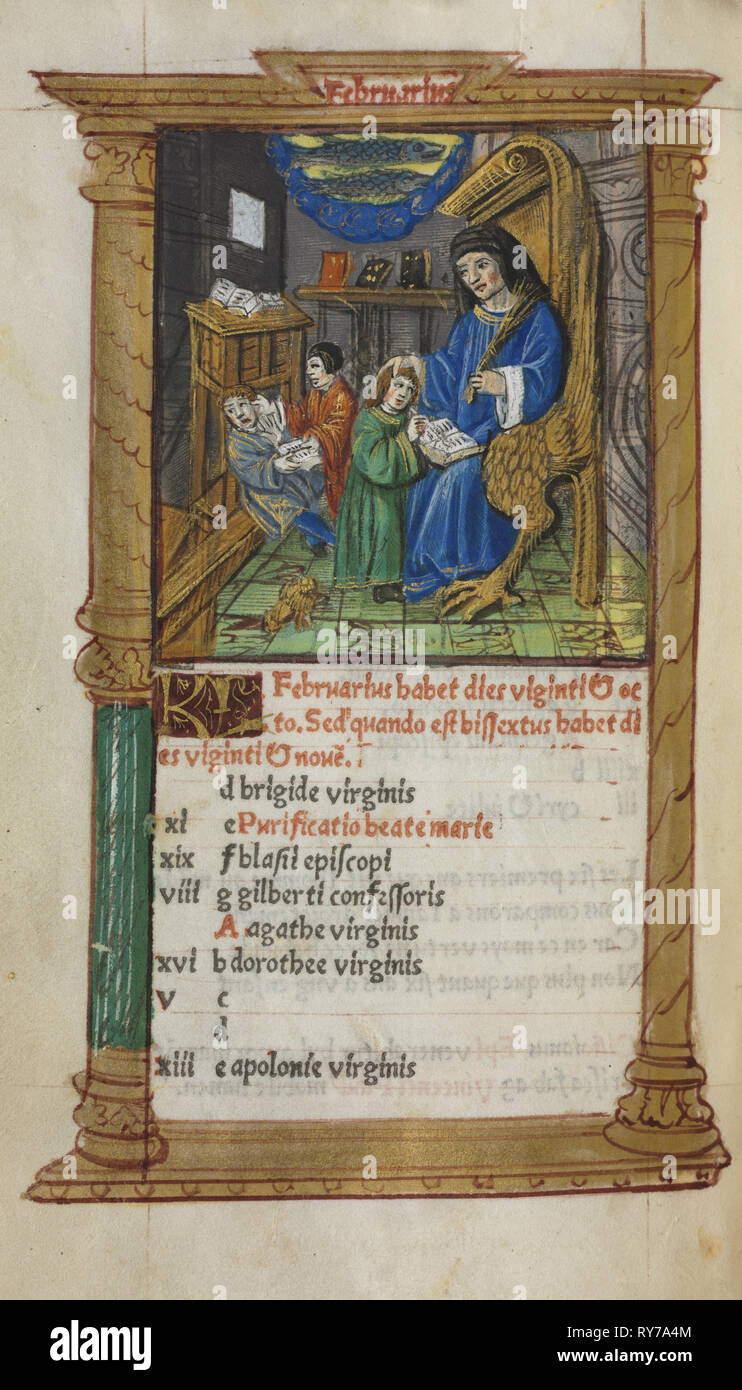 Februarius
KL Februarius habet dies viginti & oc
to. Sed quando est bissextus habet di
es viginti & nouē.
d brigide virginis
xi e Purificatio beate marie
xix f blasii episcopi
viii g gilberti confessoris
A agathe virginis
xvi b dorothee virginis
v c
d
xiii e apolonie virginis
alamy
alamy
Image ID: RY7A4M
www.alamy.com